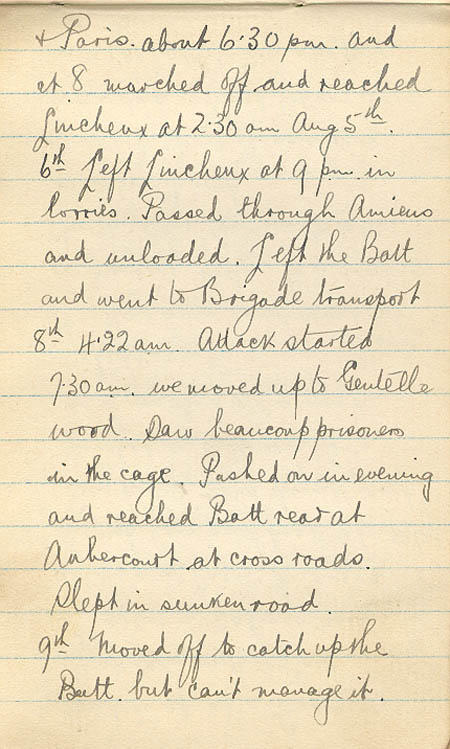 & Paris. about 6.30 pm. and
at 8 marched off and reached
Lincheux at 2.30 am Aug 5th.
6th Left Lincheux at 9 pm. in
lorries. Passed through Amiens
and unloaded. Left the Batt
and went to Brigade transport
8th 4.22 am. Attack started
7.30 am. we moved up to Gentelle
wood. Saw beaucoup prisoners
in the cage. Pushed on in evening
and reached Batt rear at
Aubercourt at cross roads.
Slept in sunken road.
9th Moved off to catch up the
Batt. but can't manage it.